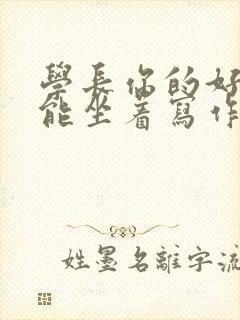 學長你的好
能坐着寫作
姓墨名離字流